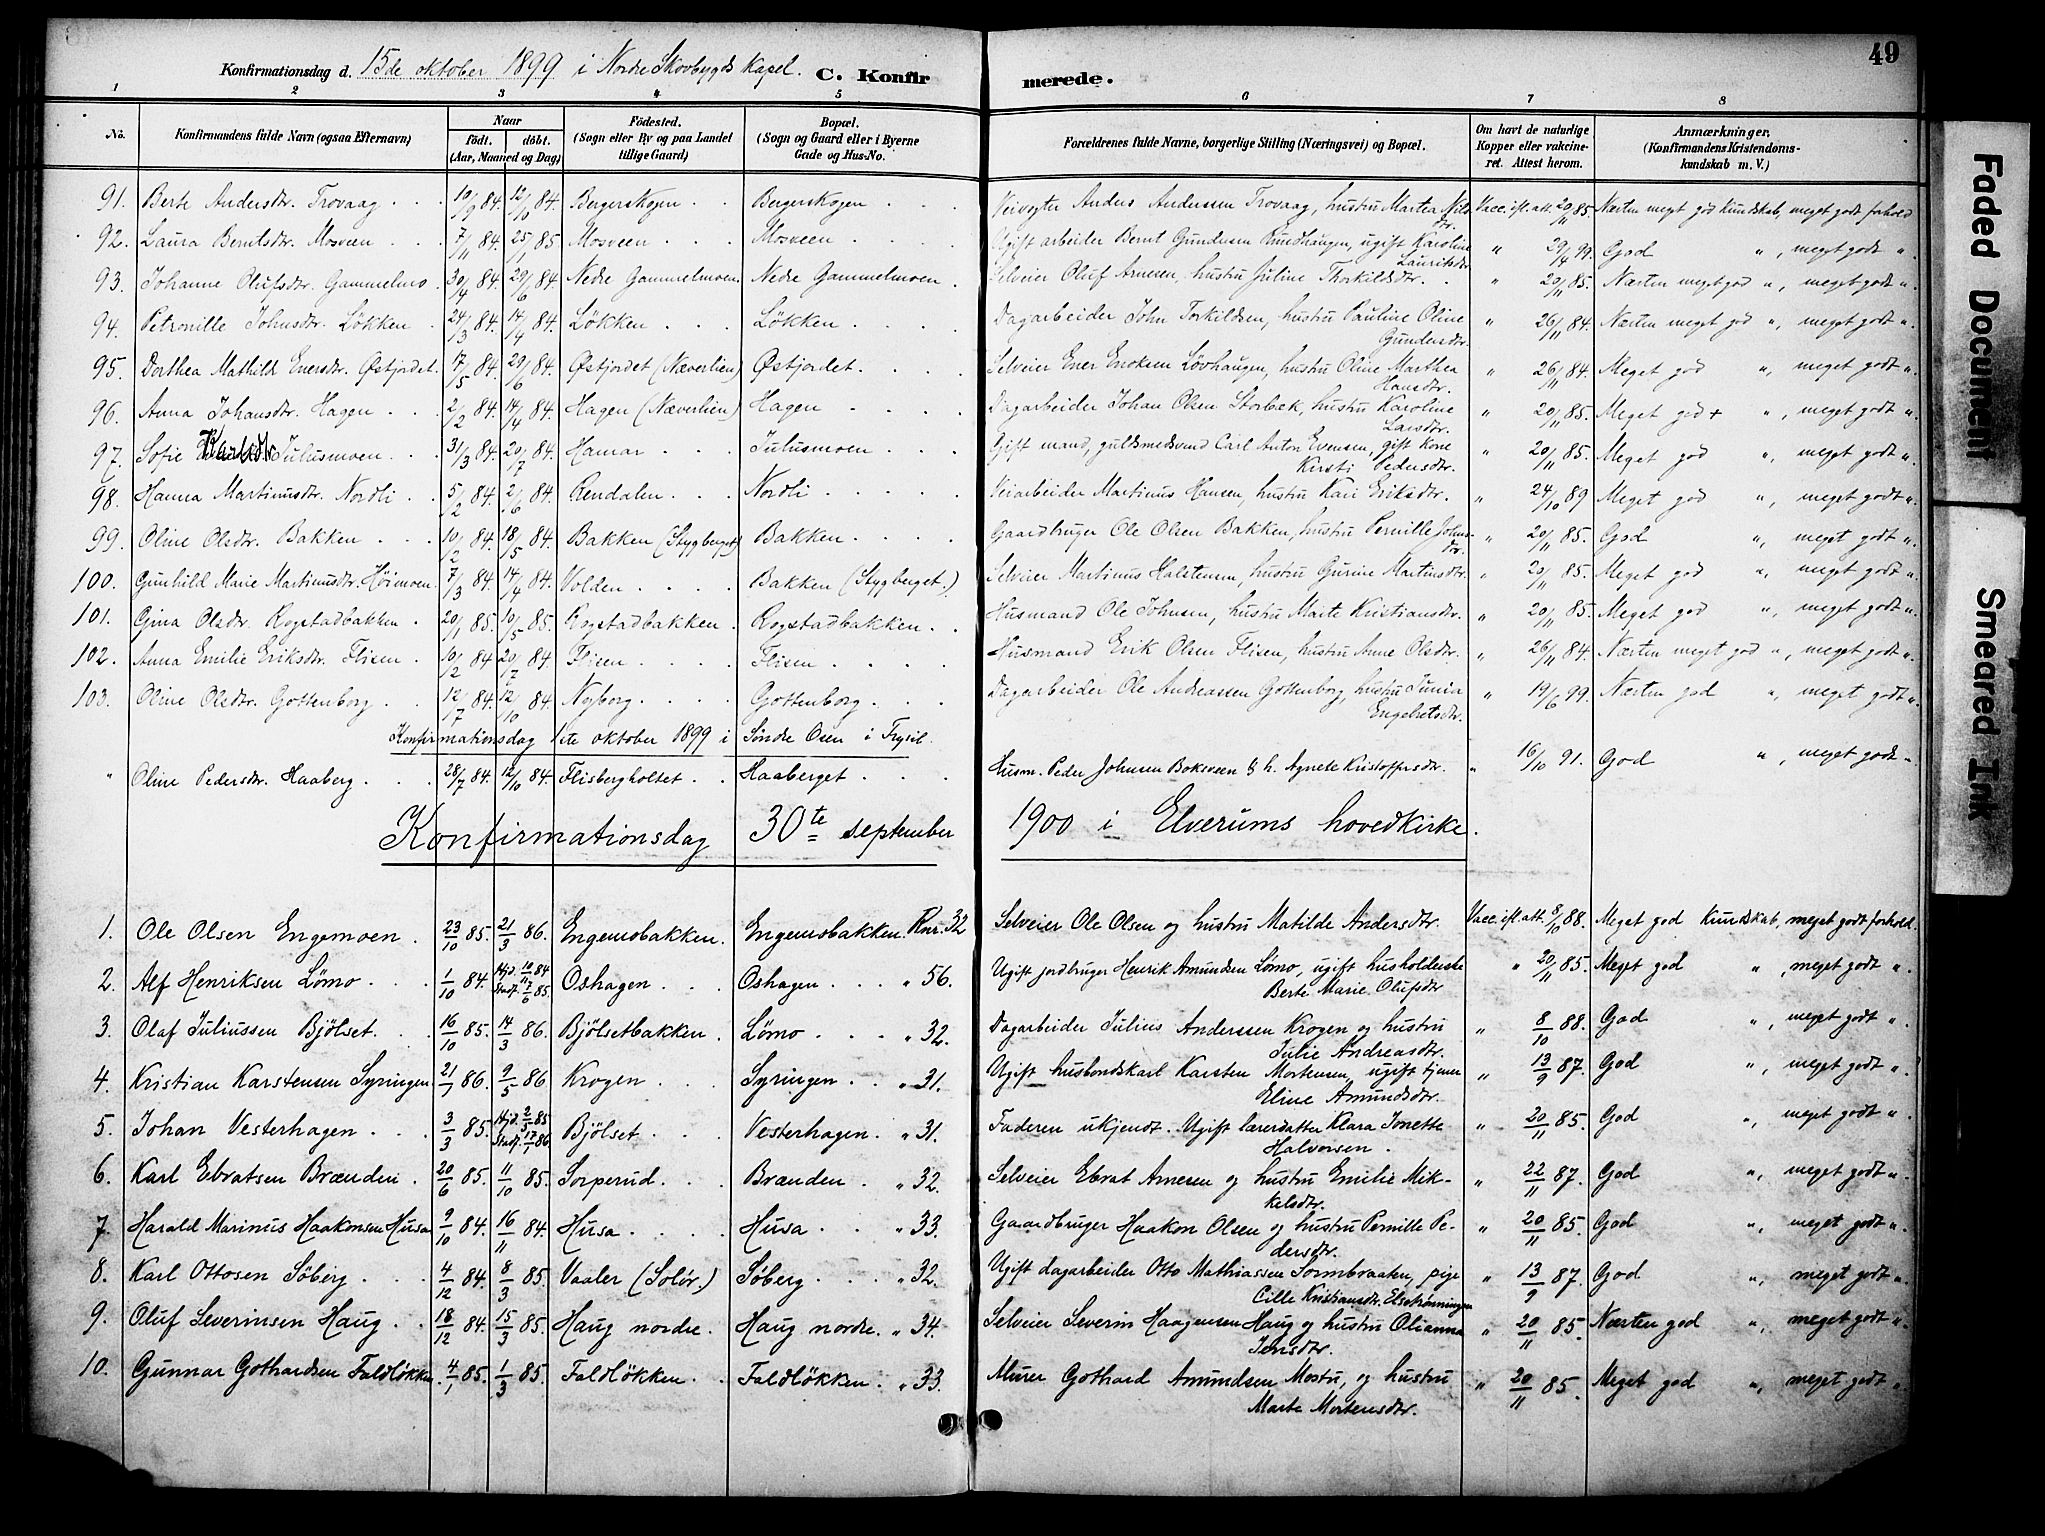 49
Konfirmationsdag d. 15de oktober 1899 i Nordre Skovbygds Kapel. C. Konfirmerede.
1 2 3 4 5 6 7 8
No. Konfirmandens fulde Navn (ogsaa Efternavn) Naar Födt. döbt. (Aar, Maaned og Dag) Födested. (Sogn eller By og paa Landet tillige Gaard) Bopæl. (Sogn og Gaard eller i Byerne Gade og Hus-No. Forældrenes fulde Navne, borgerlige Stilling (Næringsvei) og Bopæl. Om havt de naturlige Kopper eller vaccineret. Attest herom. Anmærkninger, (Konfirmandens Kristendomskundskab m. V.)
91. Berte Andersdtr. Trovaag 10/9 84. 12/10 84. Bergerskogen Bergerskogen Veivogter Anders Anderssen Trovaag, hustru Martea Nilsdtr. Vacc. ifl. att. 20/11 85. Næsten meget god kundskab, meget godt forhold
92. Laura Berntsdtr. Mosveen 7/11 84. 25/1 85 Mosveen Mosveen Ugift arbeider Bernt Gundersen Rundhaugen, ugift Karoline Lauritsdtr. " 29/4 99. God ", meget godt ".
93. Johanne Olufsdtr. Gammelmo 30/4 84. 29/6 84. Nedre Gammelmoen Nedre Gammelmoen Selveier Oluf Arnesen, hustru Juline Thorkildsdtr. " 20/11 85. Næsten meget god ", meget godt ".
94. Petronille Johnsdtr. Løkken 24/3 84. 14/4 84. Løkken Løkken Dagarbeider John Torkildsen, hustru Pauline Oline Gundersdtr. " 26/11 84. Næsten meget god ", meget godt ".
95. Dorthea Mathilde Enersdtr. Østjordet. 17/5 84. 29/6 84. Østjordet (Næverlien) Østjordet. Selveier Ener Enoksen Lövhaugen, hustru Oline Marthea Hansdtr. " 26/11 84. Meget god ", meget godt ".
96. Anna Johansdtr. Hagen 2/2 84. 14/4 84. Hagen (Næverlien) Hagen Dagarbeider Johan Olsen Storbæk, hustru Karoline Larsdtr. " 20/11 85. Meget god + ", meget godt ".
97. Sofie Karlsdtr Julusmoen 31/3 84. 20/7 84. Hamar Julusmoen Gift mand, guldsmedsvend Carl Anton Evensen, gift kone Kirsti Pedersdtr. " 20/11 85. Meget god ", meget godt ".
98. Hanna Martinusdtr. Nordli 5/2 84. 2/6 84. Rendalen Nordli Veiarbeider Martinus Hansen, hustru Kari Eriksdtr. " 24/10 89 Meget god ", meget godt ".
99. Oline Olsdtr. Bakken 10/2 84. 18/5 84. Bakken (Stygberget) Bakken Gaardbruger Ole Olsen Bakken, hustru Pernille Johnsdtr. " 20/11 85. God ", meget godt ".
100. Gunhild Marie Martinusdtr. Høimoen 7/3 84. 14/4 84. Volden Bakken (Stygberget.) Selveier Martinus Halstensen, hustru Gurine Martinsdtr. " 20/11 85. Meget god ", meget godt ".
101. Gina Olsdtr. Rogstadbakken 20/1 85. 10/5 85. Rogstadbakken Rogstadbakken Husmand Ole Johnsen, hustru Marte Kristiansdtr. " 20/11 85. Meget god ", meget godt ".
102. Anna Emilie Eriksdtr. Flisen 10/2 84 20/7 84. Flisen Flisen Husmand Erik Olsen Flisen, hustru Anne Olsdtr. " 26/11 84. Næsten meget god ", meget godt ".
103. Oline Olsdtr. Gottenborg 12/7 84. 12/10 84. Nyborg Gottenborg Dagarbeider Ole Andreassen Gottenborg, hustru Junia Engebretsdtr. " 19/6 99. Næsten god ", meget godt ".
Konfirmationsdag 1ste oktober 1899 i Søndre Osen i Trysil.
" Oline Pedersdtr. Haaberg 28/7 84. 12/10 84. Flisbergholtet Haaberget Husm. Peder Johnsen Bokeveen & h. Agnete Kristoffersdtr. " 16/10 91. God ", meget godt "
Konfirmationsdag 30te september 1900 i Elverums hovedkirke.
1. Ole Olsen Engemoen. 23/10 85. 21/3 86. Engemobakken. Engemobakken. Rnr. 32 Selveier Ole Olsen og hustru Matilde Andersdtr. Vacc. ifl. att. 8/10 88. Meget god Kundskab, meget godt forhold.
2. Alf Henriksen Lömo 1/10 84. Hjd. 10/10 84 Stadf. 17/6 85. Oshagen Oshagen " 56. Ugift jordbruger Henrik Amundsen Lömo, ugift husholderske Berte Marie Olufsdtr " 20/11 85. Meget god ", meget godt ".
3. Olaf Juliussen Bjölset. 16/10 85. 14/3 86. Bjölsetbakken. Lömo " 32. Dagarbeider Julius Anderssen Krogen og hustru Julie Andreasdtr. " 8/10 88. God ", meget godt ".
4. Kristian Karstensen Syringen 21/1 86. 9/5 86 Krogen Syringen " 31. Ugift husbondskarl Karsten Mortensen, ugift tjener Eline Amundsdtr. " 13/9 87. God ", meget godt ".
5. Johan Vesterhagen 3/3 85. Hjd. 2/5 85 Stadf. 17/1 86 Bjölset Vesterhagen. " 31. Faderen ukjendt. Ugift lærerdatter Klara Jonette Halvorsen. " 20/11 85. God ", meget godt ".
6. Karl Ebratsen Brænden 20/6 85. 11/10 85. Sorperud. Brænden " 32. Selveier Ebrat Arnesen og hustru Emilie Mikkelsdtr. " 22/11 87. God ", meget godt ".
7. Harald Marinus Haakonsen Husa 9/10 84. 16/11 84. Husa Husa " 33. Gaardbruger Haakon Olsen og hustru Pernille Pedersdtr. " 20/11 85. God ", meget godt ".
8. Karl Ottosen Söberg 4/12 84. 8/3 85. Vaaler (Solör.) Söberg " 32. Ugift dagarbeider Otto Mathiassen Sormbraaten, pige Cille Kristiansdtr. Elsetrönningen " 13/9 87. God ", meget godt ".
9. Oluf Severinsen Haug 18/12 84. 15/3 85. Haug nordre. Haug nordre. " 34. Selveier Severin Haagensen Haug og hustru Olianna Jensdtr. " 20/11 85. Næsten god ", meget godt ".
10. Gunnar Gothardsen Faldløkken. 4/1 85. 1/3 85. Faldløkken. Faldløkken. " 33. Murer Gothard Amundsen Mostu, og hustru Marte Mortensdtr. " 20/11 85. Meget god ", meget godt ".
Faded Document
Smeared Ink